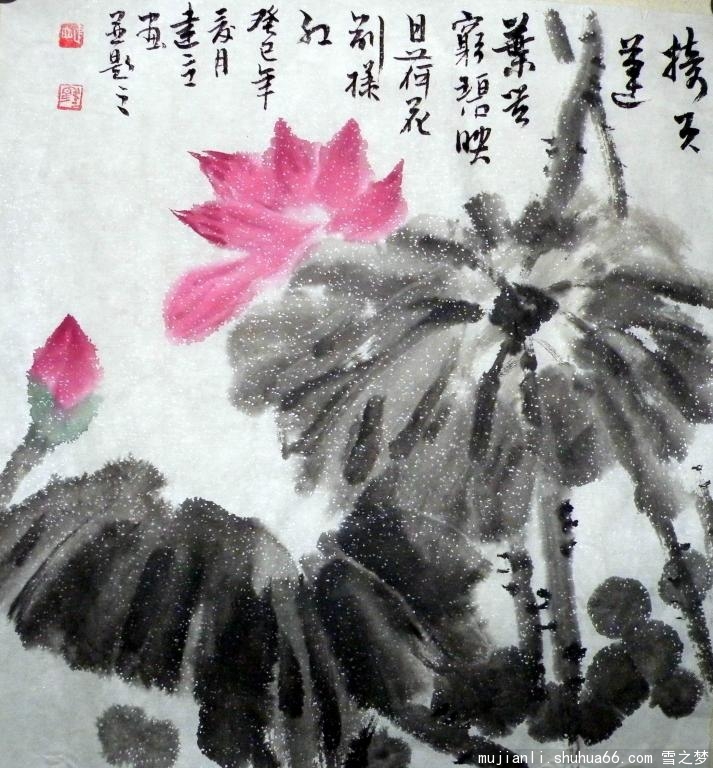 接天
蓮
葉無
窮碧映
日荷花
别樣
红
癸巳年
夏月
建立
画
並題之
mujianli.shuhua66.com 雪之梦